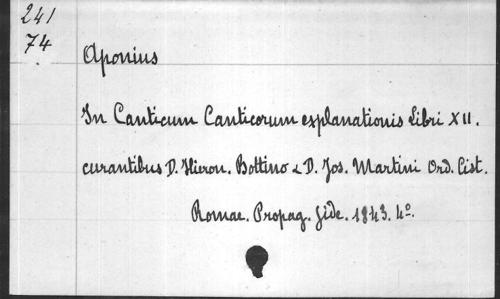 241
74
Aponius
In Canticum Canticorum explanationis Libri XII.
curantibus D. Hieron. Bottino & D. Jos. Martini Ord. Cist.
Romae. Propag. Fide. 1843. 4º.